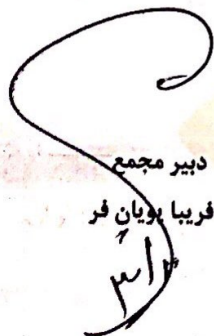 دبیر مجمع
فریبا پویان فر